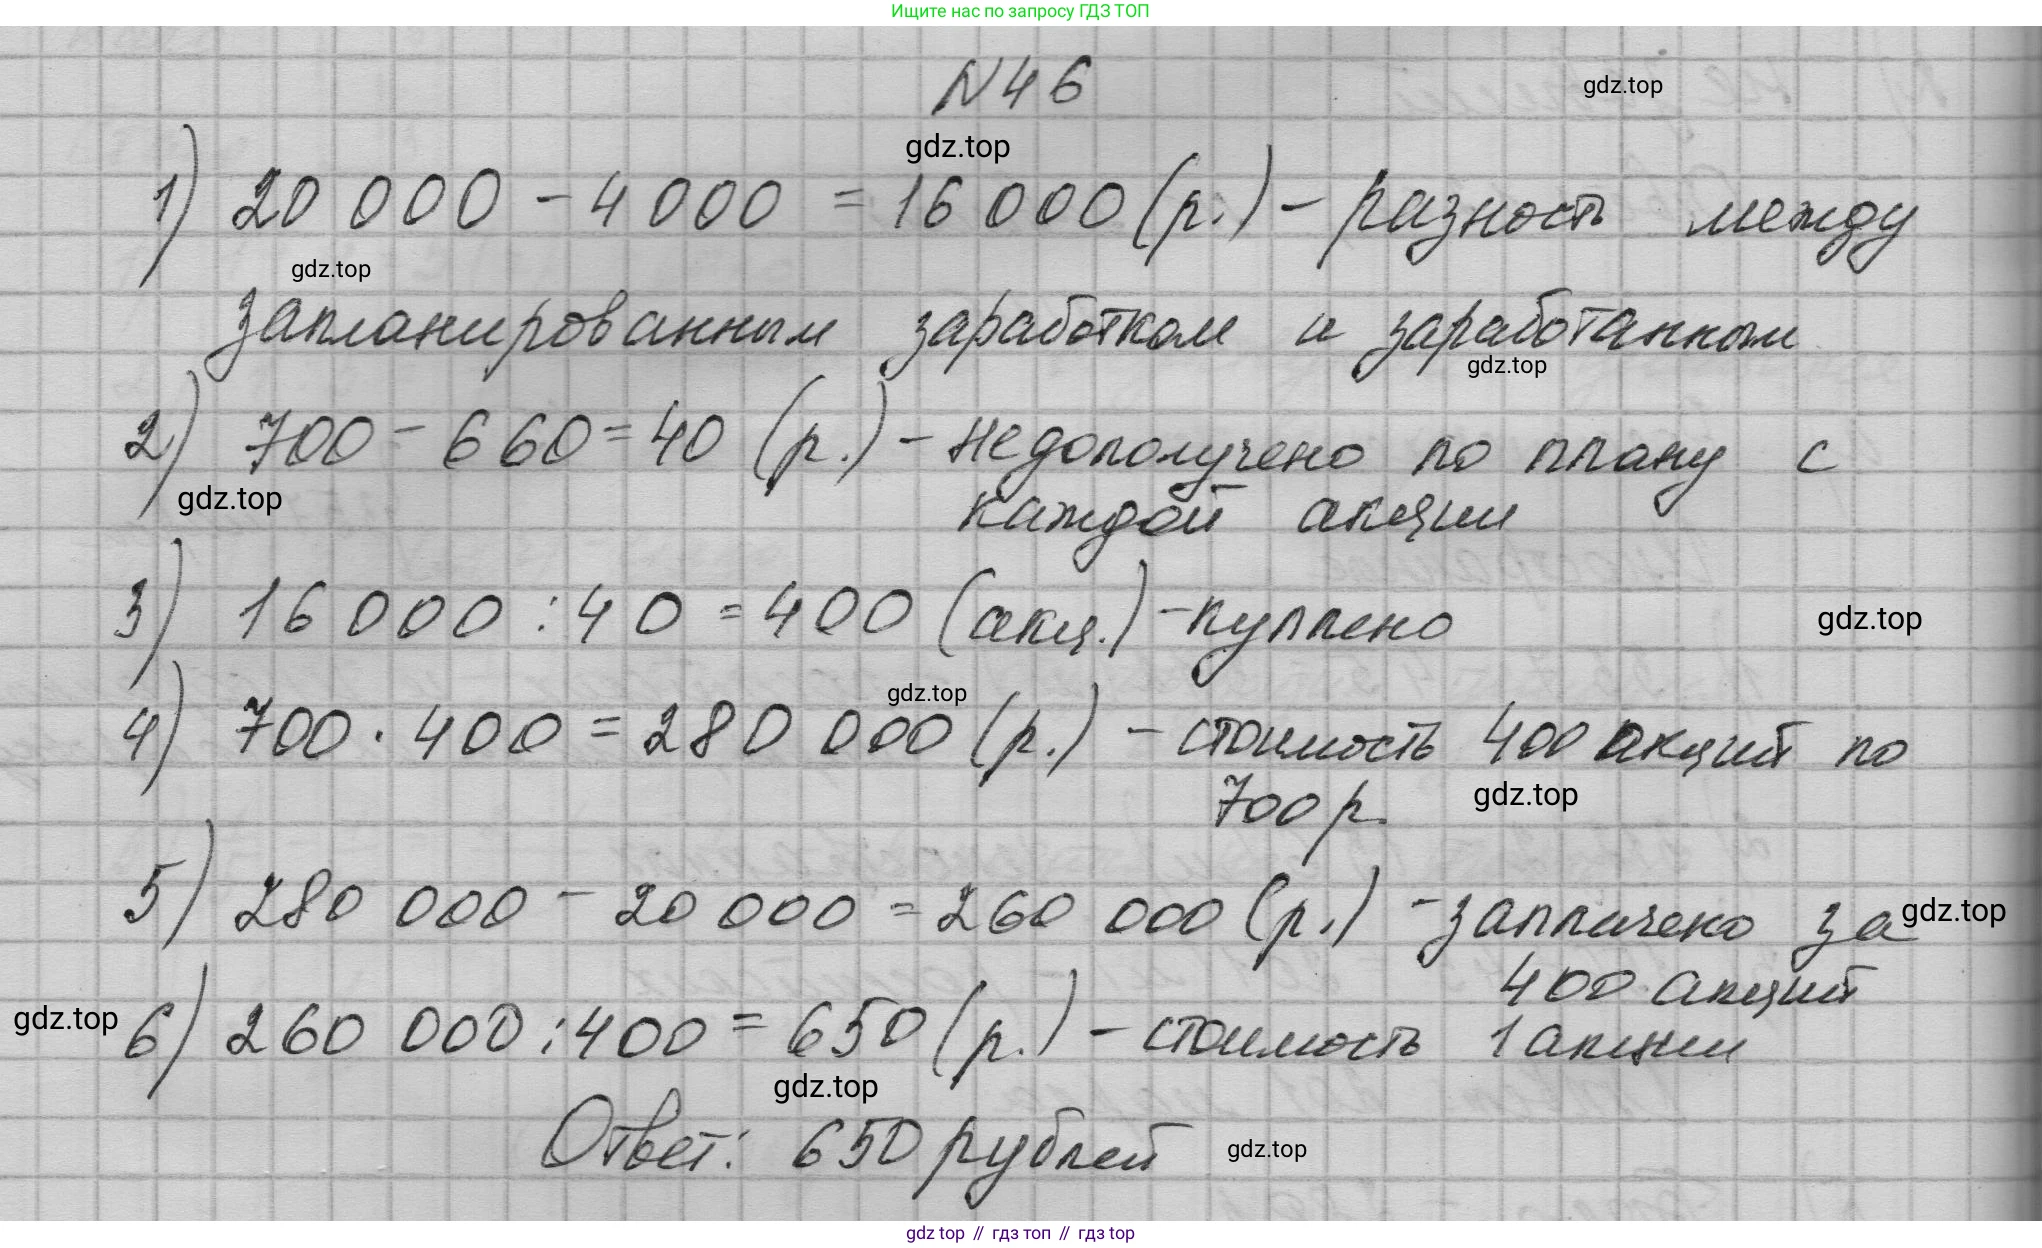 Ищите нас по запросу ГДЗ ТОП
N46
gdz.top
gdz.top
1) 20 000 - 4 000 = 16 000 (р.) - разность между
gdz.top
запланированным заработком и заработанным
gdz.top
2) 700 - 660 = 40 (р.) - недополучено по плану с
gdz.top
каждой акции
3) 16 000 : 40 = 400 (акц.) - куплено
gdz.top
gdz.top
4) 700 · 400 = 280 000 (р.) - стоимость 400 акций по
700 р.
gdz.top
5) 280 000 - 20 000 = 260 000 (р.) - заплачено за
gdz.top
400 акций
gdz.top
6) 260 000 : 400 = 650 (р.) - стоимость 1 акции
gdz.top
Ответ: 650 рублей
gdz.top
gdz top // гдз топ // гдз top